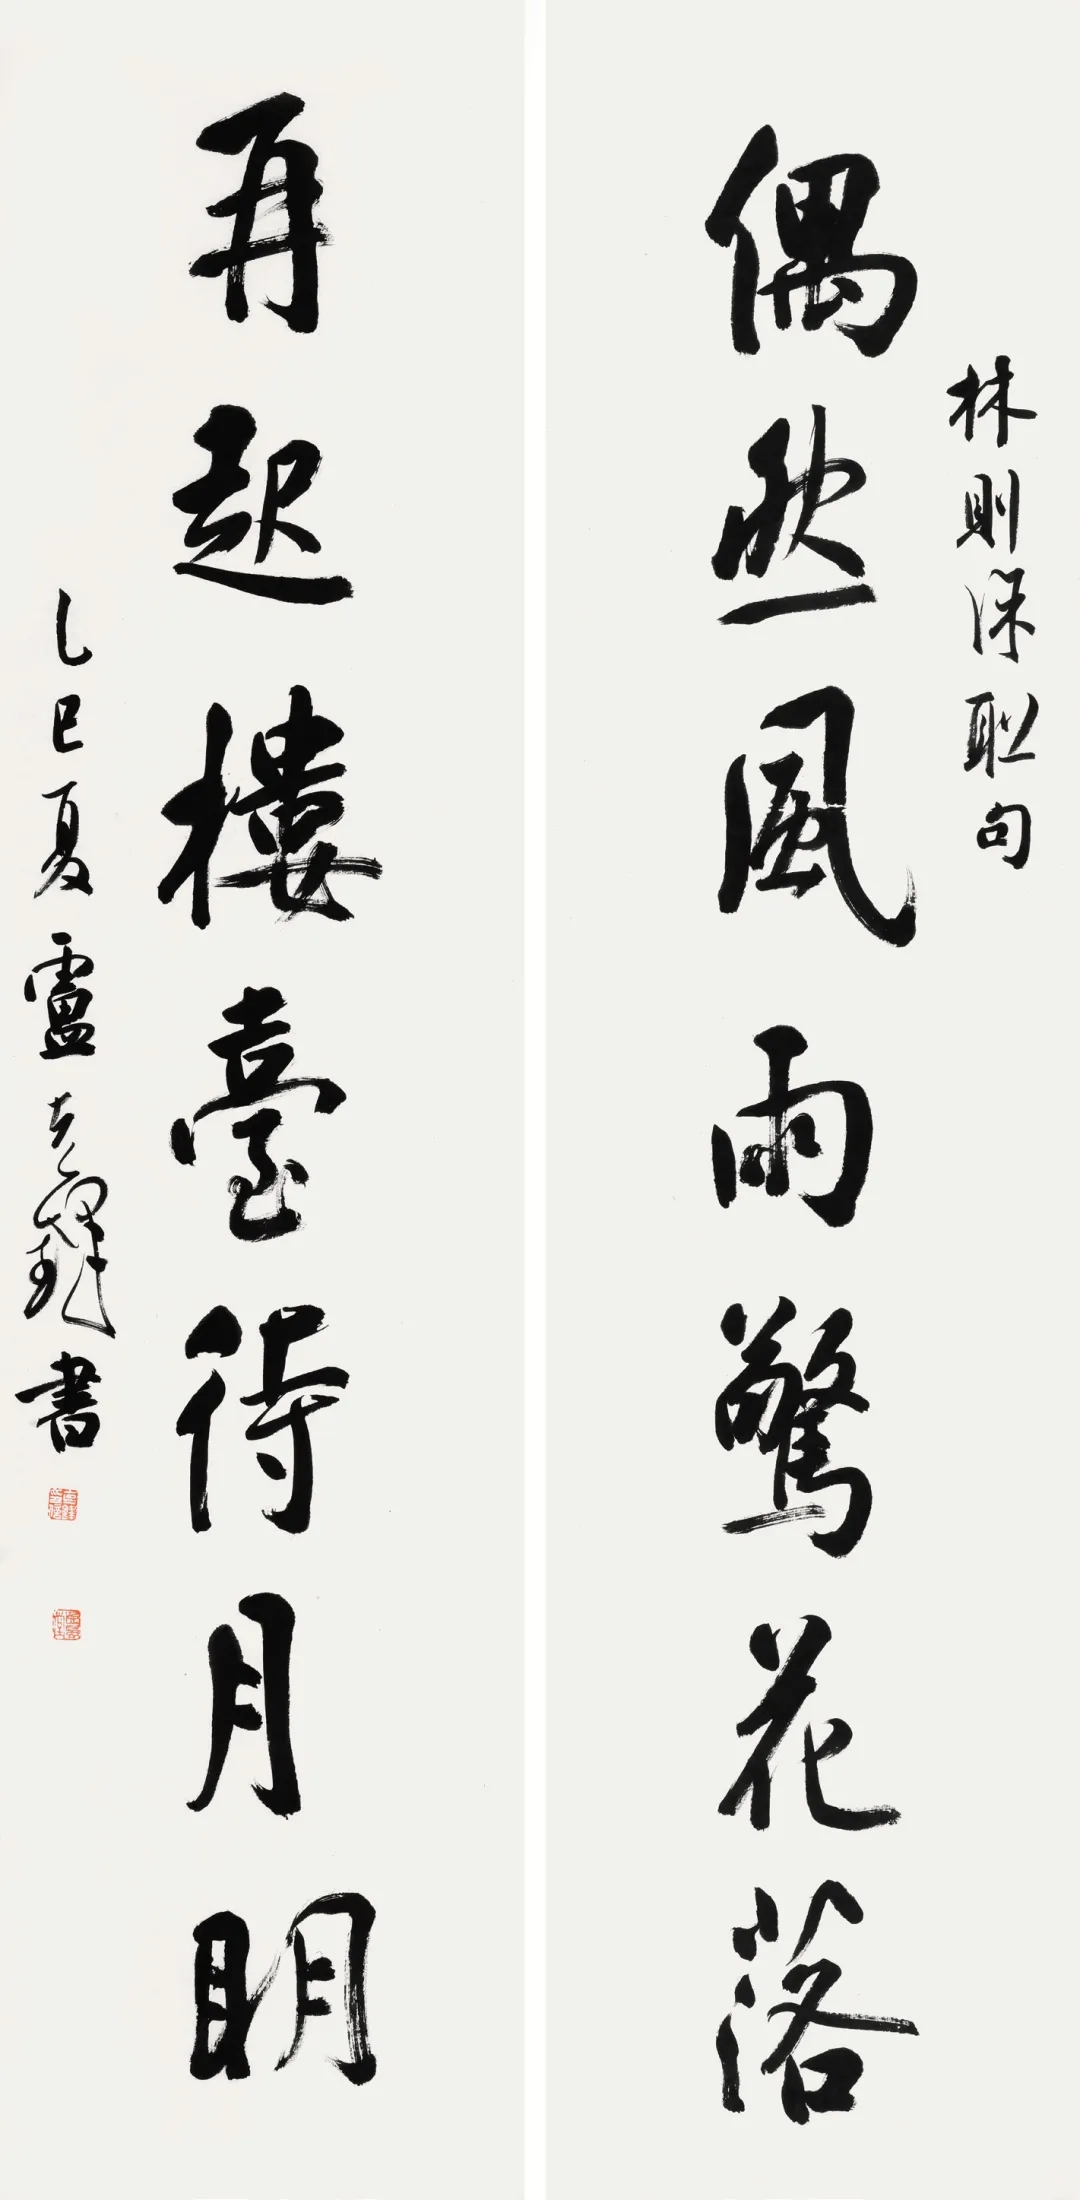 林則徐联句
偶然風雨驚花落
再起樓臺待月明
乙巳夏盧書